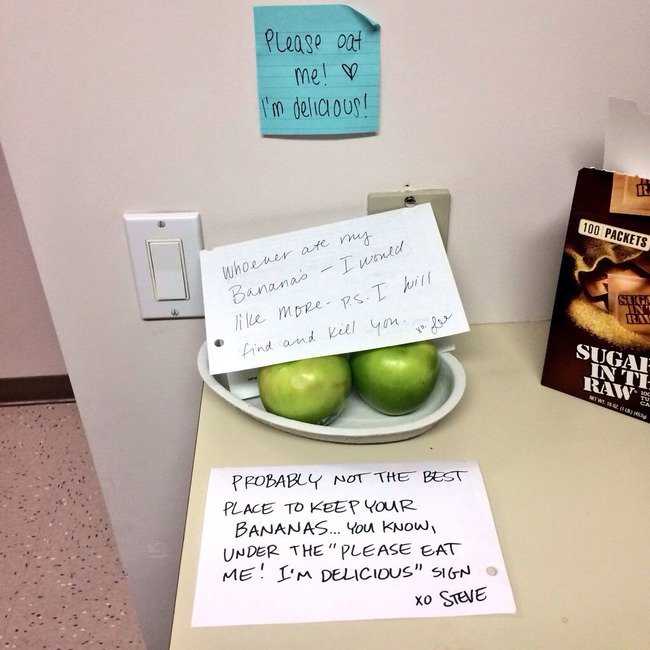 Please eat
me! ♡
I'm delicious!
Whoever ate my
Bananas – I would
like more. P.S. I will
find and kill you.
PROBABLY NOT THE BEST
PLACE TO KEEP YOUR
BANANAS... YOU KNOW,
UNDER THE "PLEASE EAT
ME! I'M DELICIOUS" SIGN
XO STEVE
100 PACKETS
SUGAR
IN THE
RAW
NET WT. 16 OZ. (1 LB)